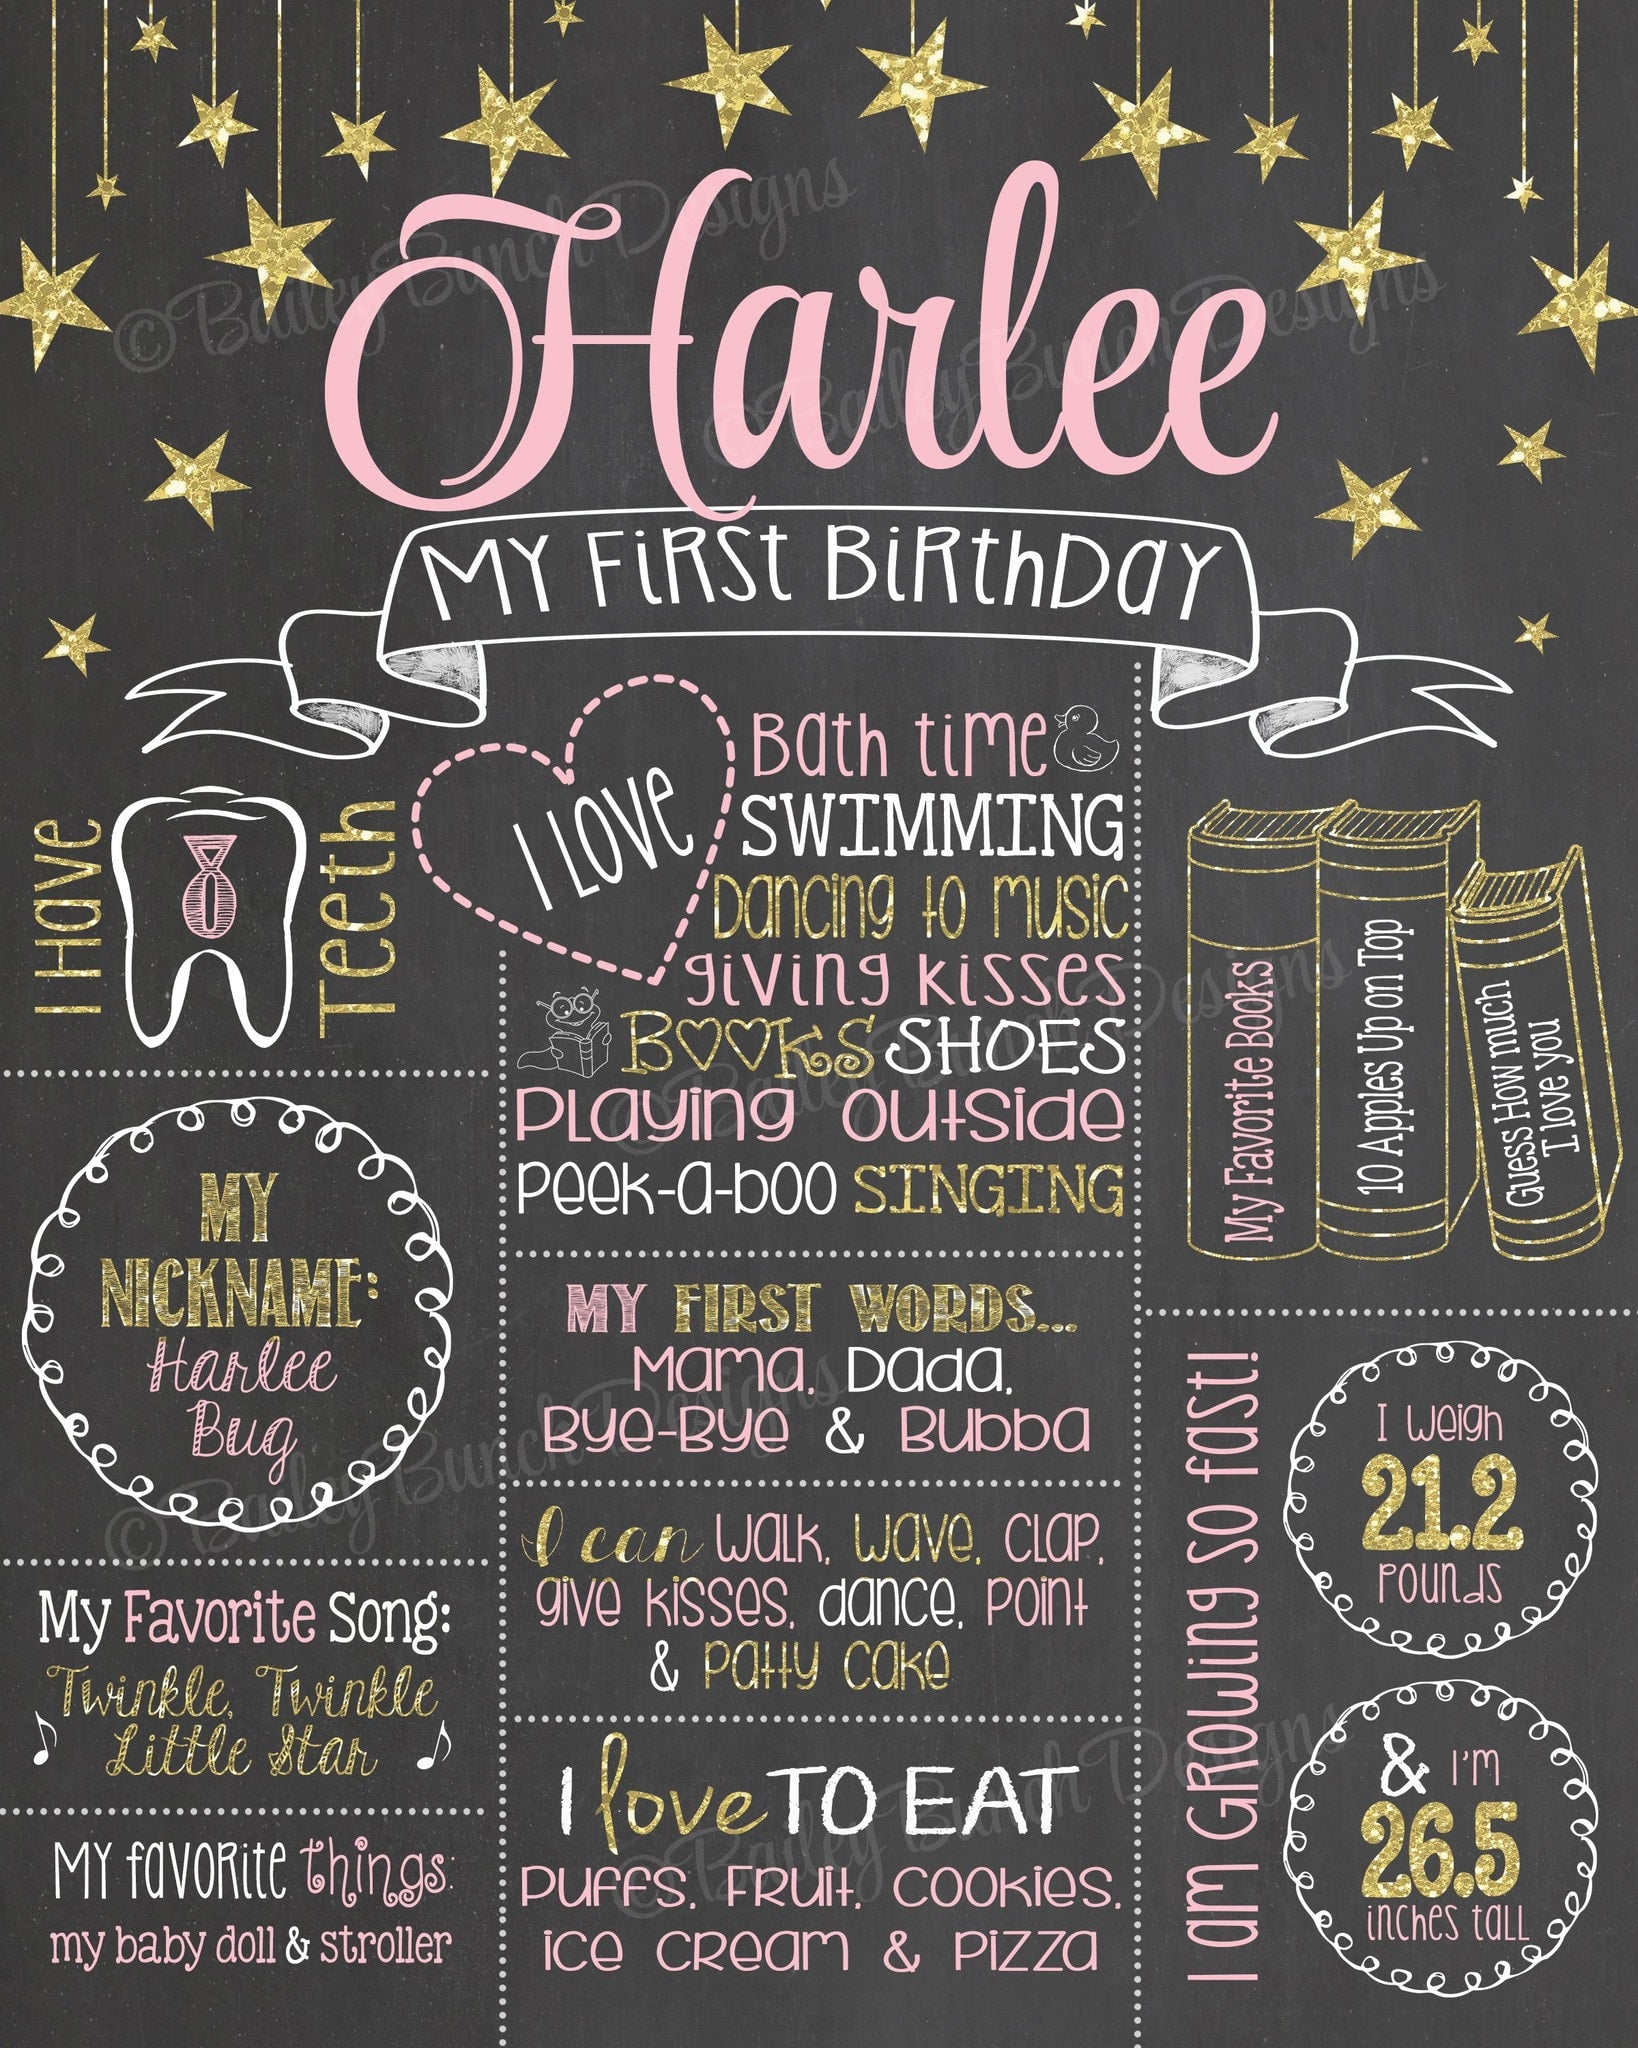 Harlee
MY FiRST BiRthDaY
I Have
8
Teeth
I LOVE
Bath time
SWIMMING
Dancing to music
giving kisses
BOOKS SHOES
Playing outside
Peek-a-boo SINGING
My Favorite Books
10 Apples Up on Top
Guess How much
I love you
MY
NICKNAME:
Harlee
Bug
MY FIRST WORDS...
Mama, Dada,
Bye-Bye & Bubba
I can walk, wave, clap,
give kisses, dance, point
& patty cake
My Favorite Song:
Twinkle, Twinkle
Little Star
MY favorite things:
my baby doll & stroller
I love TO EAT
Puffs, Fruit, Cookies,
ice cream & pizza
I am Growing so fast!
I weigh
21.2
pounds
& I'm
26.5
inches tall
©Bailey Bunch Designs
©Bailey Bunch Designs
©Bailey Bunch Designs
©Bailey Bunch Designs
©Bailey Bunch Designs